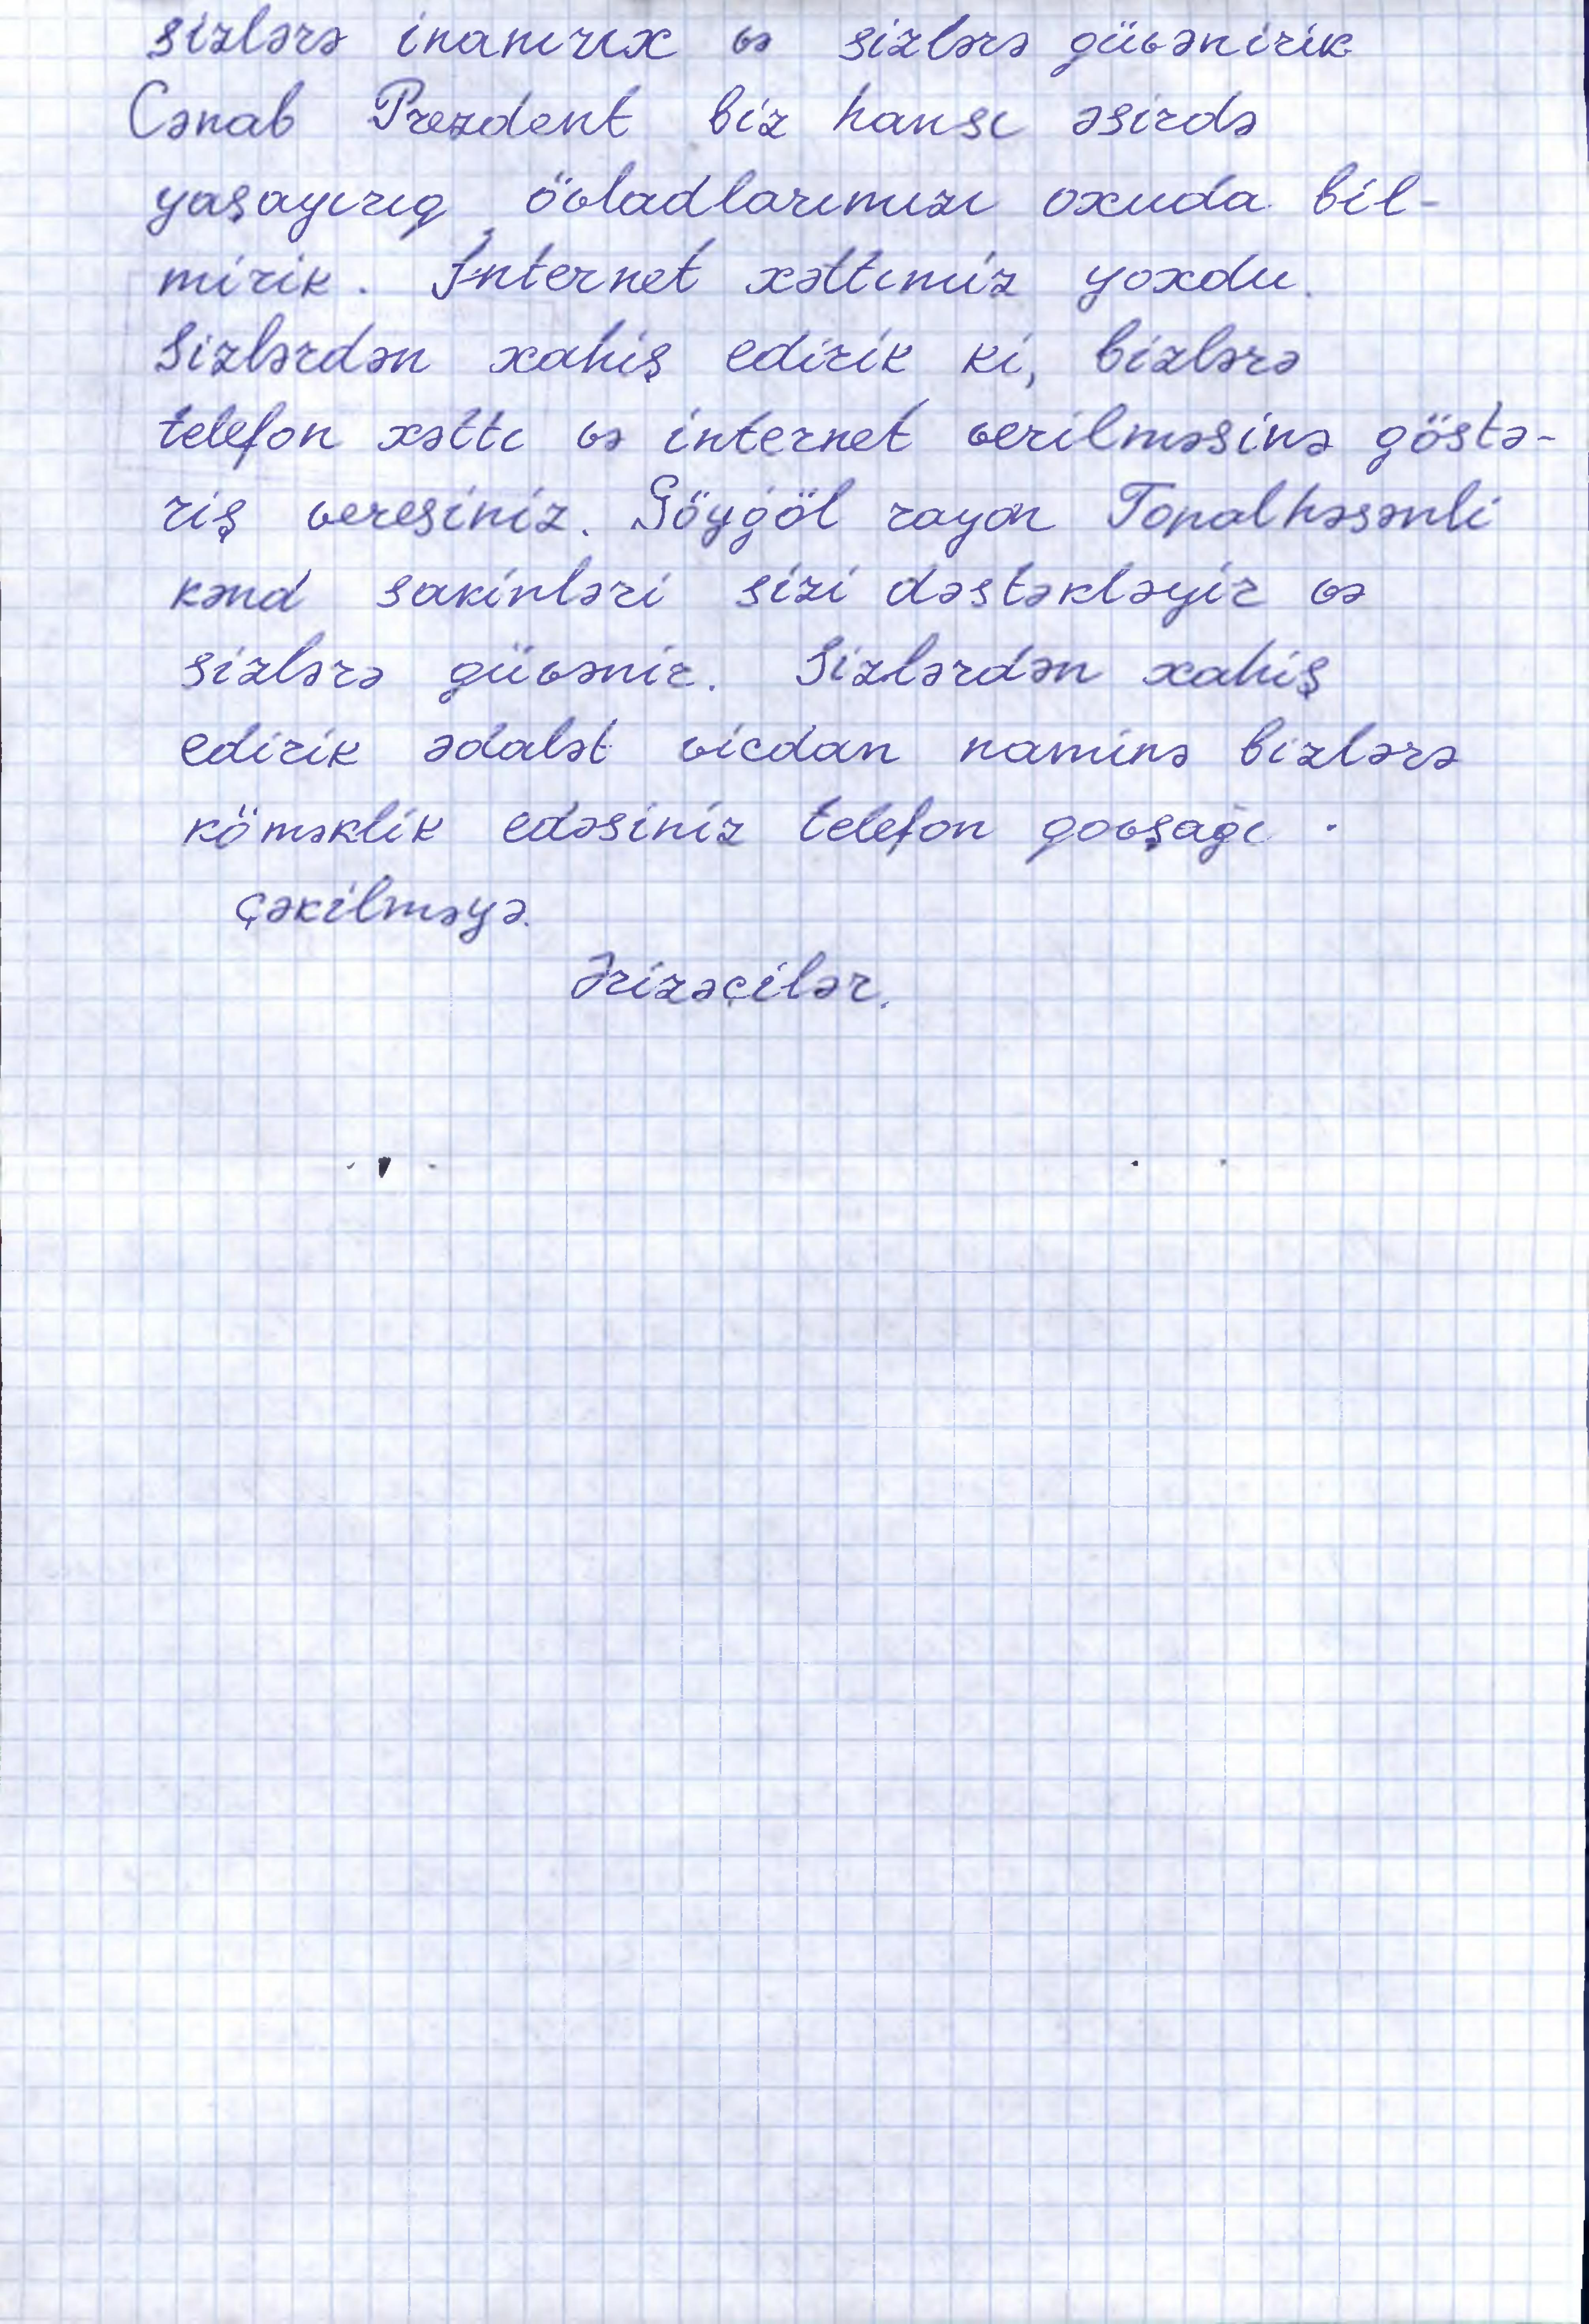 sizlərə inanırıx və sizlərə güvənirik
Cənab Prezdent biz hansı əsirdə
yaşayırıq, övladlarımızı oxuda bil-
mirik. İnternet xəttımiz yoxdu.
Sizlərdən xahiş edirik ki, bizlərə
telefon xəttı və internet verilməsinə göstə-
riş veresiniz. Göygöl rayon Topalhəsənli
kənd sakinləri sizi dəstəkləyir və
sizlərə güvənir. Sizlərdən xahiş
edirik ədalət vicdan naminə bizlərə
köməklik edəsiniz telefon qovşağı
çəkilməyə.
Ərizəçilər.